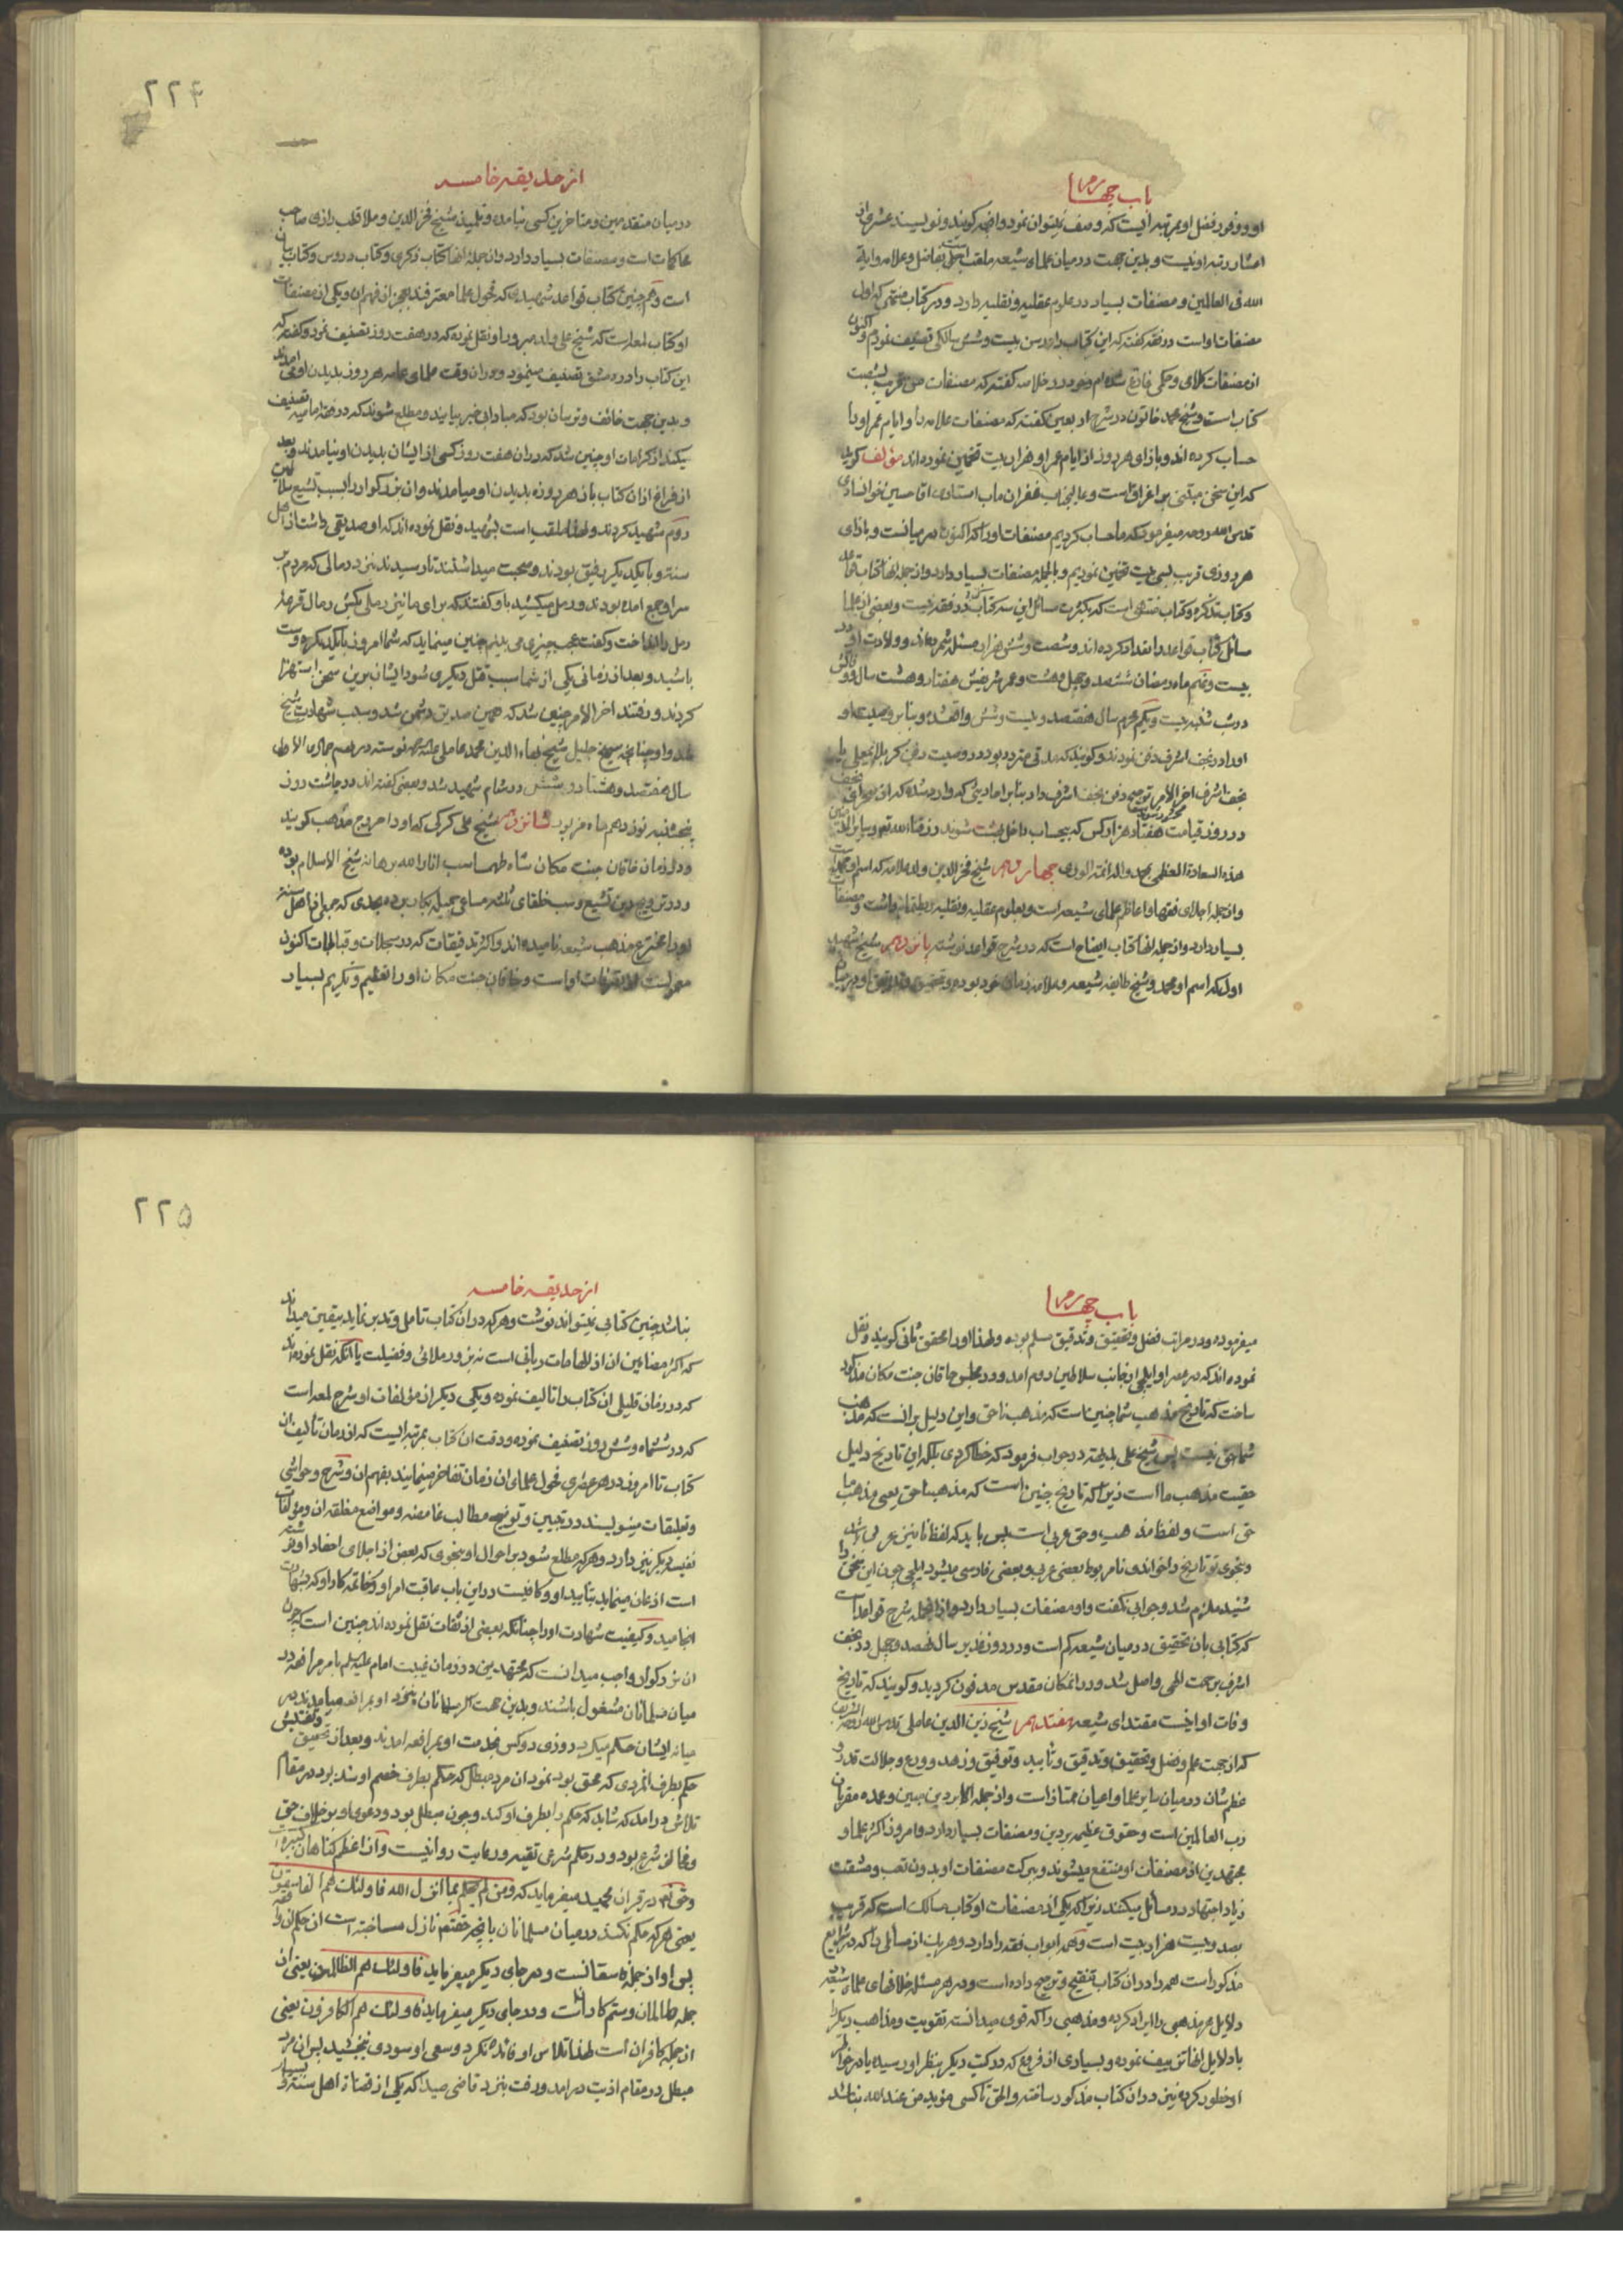 باب چهارم
او و وفور فضل او بمرتبه ایست که وصف نمیتوان نمود و انچه کویند و نویسند عشری از
اعشار رتبه او نیست و بدین جهت در میان علماء شیعه ملقب است بفاضل و علامه و ایة
الله فی العالمین و مصنفات بسیار در علوم عقلیه و نقلیه دارد و در کتاب منتهی که اول
مصنفات او است در فقه کفته که این کتاب را در سن بیست و شش سالکی تصنیف نمودم و اکنون
از مصنفات کلامی و حکمی فارغ شده ام و خود در خلاصه کفته که مصنفات من قریب بشصت
کتاب است و شیخ محمد خاتون در شرح اربعین کفته که مصنفات علامه را و ایام عمر او را
حساب کرده اند و بازای هر روز از ایام عمر او هزار بیت تخمین نموده اند مؤلف کوید
که این سخن مبتنی بر اغراق است و عالیجناب غفران ماب استادی اقا حسین خوانساری
قدس الله روحه میفرمود که ما حساب کردیم مصنفات او را که اکنون در میانست و بازای
هر روزی قریب بسی بیت تخمین نمودیم و بالجمله مصنفات بسیار دارد و از جمله انها کتاب قواعد
و کتاب تذکره و کتاب منتهی است که بکثرت مسائل این سه کتاب در فقه نیست و بعضی از علما
مسائل کتاب قواعد را تعداد کرده اند و شصت و شش هزار مسئله شمرده اند و ولادت او در
بیست و نهم ماه رمضان ششصد و چهل و هشت و عمر شریفش هفتاد و هشت سال و وفاتش
در شب شنبه بیست و یکم محرم سال هفتصد و بیست و شش واقع شده و بنا بر وصیت او
او را در نجف اشرف دفن نمودند و کویند که مدتی متردد بود در وصیت دفن کربلای معلی یا
نجف اشرف اخر الامر ترجیح دفن نجف اشرف داد بنا بر احادیثی که وارد شده که از صحرای نجف
در روز قیامت هفتاد هزار کس که بیحساب داخل بهشت شوند رزقنا الله تعالی و سایر المؤمنین
هذه السعادة العظمی بمحمد واله ائمة الوری چهاردهم شیخ فخر الدین ولد علامه که اسم او محمد است
و از جمله اجلای فقها و اعاظم علمای شیعه است و بعلوم عقلیه و نقلیه ربط تمام داشت و مصنفات
بسیار دارد و از جمله انها کتاب ایضاح است که در شرح قواعد نوشته پانزدهم شیخ شهید
اول که اسم او محمد و شیخ طایفه شیعه و علامه زمان خود بوده و بتحقیق و تدقیق او در میان
۲۲۴
از حدیقه خامسه
در میان متقدمین و متاخرین کسی نیامده و تلمیذ شیخ فخر الدین و ملا قطب رازی صاحب
محاکمات است و مصنفات بسیار دارد و از جمله انها کتاب ذکری و کتاب دروس و کتاب بیان
است و هم چنین کتاب قواعد شهیدی که فحول علما معترفند بعجز از فهم ان و یکی از مصنفات
او کتاب لمعه است که شیخ علی ولد مبرور او نقل نموده که در هفت روز تصنیف نمود و کفته که
این کتاب را در دمشق تصنیف مینمود و در ان وقت علمای عامه هر روز بدیدن او می امدند
و بدین جهت خائف و ترسان بود که مبادا بی خبر بیایند و مطلع شوند که در فقه امامیه تصنیف
میکند از کرامات او چنین شد که در ان هفت روز کسی از ایشان بدیدن او نیامدند و بعد
از فراغ از ان کتاب باز هر روزه بدیدن او میامدند و ان بزرکوار را بسبب تشیع
شهید کردند و لهذا ملقب است بشهید و نقل نموده اند که او صدیقی داشت از اهل
سنت و با یکدیکر رفیق بودند و صحبت میداشتند تا رسیدند نزد رمالی که مردم بر
سر او جمع امده بودند و رمل میکشید باو کفتند که برای ما نیز رملی بکش رمال قرعه
رمل را انداخت و کفت عجب چیزی می بینم چنین مینماید که شما امروز با یکدیکر دوست
باشید و بعد از زمانی یکی از شما سبب قتل دیکری شود ایشان برین سخن استهزا
کردند و رفتند اخر الامر چنین شد که همین صدیق دشمن شد و سبب شهادت شیخ
شد و او چنانچه شیخ جلیل شیخ بهاء الدین محمد عاملی علیه الرحمه نوشته در نهم جمادی الاولی
سال هفتصد و هشتاد و شش در شام شهید شد و بعضی کفته اند در چاشت روز
پنجشنبه نوزدهم ماه مزبور شانزدهم شیخ علی کرکی که او را مروج مذهب کویند
و در زمان خاقان جنت مکان شاه طهماسب انار الله برهانه شیخ الاسلام بوده
و در ترویج دین تشیع و سب خلفای ثلثه مساعی جمیله بکار برده بحدی که جمعی از اهل سنت
او را مخترع مذهب شیعه نامیده اند و اکثر تدقیقات که در سجلات و قبالجات اکنون
معمولست از تصرفات او است و خاقان جنت مکان او را تعظیم و تکریم بسیار
باب چهارم
میفرموده و در مراتب فضل و تحقیق و تدقیق مسلم بوده و لهذا او را محقق ثانی کویند و نقل
نموده اند که در عصر او ایلچی از جانب سلاطین روم امد و در مجلس خاقان جنت مکان مذکور
ساخت که تاریخ مذهب شما چنین است که مذهب ناحق و این دلیل بر انست که مذهب
شما حق نیست پس شیخ علی بدیهة در جواب فرمود که خطا کردی بلکه این تاریخ دلیل
حقیت مذهب ما است زیرا که تاریخ چنین است که مذهبنا حق یعنی مذهب ما
حق است و لفظ مذهب و حق عربی است پس باید که لفظ نا نیز عربی باشد
و بنحوی تو تاریخ را خواندی نامربوط بعضی عربی و بعضی فارسی میشود ایلچی چون این سخن را
شنید ملزم شد و جوابی نکفت و او مصنفات بسیار دارد و از انجمله شرح قواعد است
که کتابی بان تحقیق در میان شیعه کم است و در روز غدیر سال نهصد و چهل در نجف
اشرف برحمت الهی واصل شد و در انمکان مقدس مدفون کردید و کویند که تاریخ
وفات او اینست مقتدای شیعه هفتدهم شیخ زین الدین عاملی قدس الله روحه الشریف
که از جهت علم و فضل و تحقیق و تدقیق و تأیید و توفیق و زهد و ورع و جلالت قدر و
عظم شان در میان سایر علما و اعیان ممتاز است و از جمله اکابر دین مبین و عمده مقربان
رب العالمین است و حقوق عظیمه بر دین و مصنفات بسیار دارد و امروز اکثر علما و
مجتهدین از مصنفات او منتفع میشوند و ببرکت مصنفات او بدون تعب و مشقت
زیاد اجتهاد در مسائل میکنند زیرا که یکی از مصنفات او کتاب مسالک است که قریب
بصد و بیست هزار بیت است و همه ابواب فقه را دارد و هر یک از مسائلی را که در شرایع
مذکور است همه را در ان کتاب تنقیح و ترجیح داده است و در هر مسئله خلافهای علماء شیعه
دلایل هر مذهبی را ایراد کرده و مذهبی را که قوی میدانسته تقویت و مذاهب دیکر را
با دلایل انها تزییف نموده و بسیاری از فروع که در کتب دیکر بنظر او رسیده یا در خواطر
او خطور کرده نیز در ان کتاب مذکور ساخته و الحق تا کسی مؤید من عند الله نباشد
۲۲۵
از حدیقه خامسه
نباشد چنین کتابی نمیتواند نوشت و هر که در ان کتاب تامل و تدبر نماید بیقین میداند
که اکثر مضامین ان از الهامات ربانی است نه بزور ملائی و فضیلت با انکه نقل نموده اند
که در زمان قلیلی ان کتاب را تالیف نموده و یکی دیکر از مؤلفات او شرح لمعه است
که در ششماه و شش روز تصنیف نموده و دقت ان کتاب بمرتبه ایست که از زمان تالیف ان
کتاب تا امروز در هر عصری فحول علمای ان زمان تفاخر مینمایند بفهم ان و شرح و حواشی
و تعلیقات مینویسند در تبیین و توضیح مطالب غامضه و مواضع مغلقه ان و مؤلفات
نفیسه دیکر نیز دارد و هر که مطلع شود بر احوال او بنحوی که بعض از اجلای احفاد او نوشته
است اذعان مینماید بتایید او و کافیست در این باب عاقبت امر او و خاتمه کار او که بشهادت
انجامید و کیفیت شهادت او را چنانکه بعضی از ثقات نقل نموده اند چنین است که چون
ان بزرکوار واجب میدانست که مجتهدین در زمان غیبت امام علیه السلام بامر مرافعه در
میان مسلمانان مشغول باشند و بدین جهت اکثر مسلمانان نزد او بمرافعه میامدند و در
میانه ایشان حکم میکرد روزی دو کس بخدمت او بمرافعه امدند و بعد از تحقیق و تفتیش
حکم بطرف انمردی که محق بود نمود ان مرد مبطل که حکم بطرف خصم او شده بود در مقام
تلاش در امد که شاید که حکم را بطرف او کند و چون مبطل بود و دعوی او بر خلاف حق
و مخالف شرع بود و در حکم شرعی تقیه و رعایت روا نیست و از اعظم کناهان کبیره است
و حق تعالی در قران مجید میفرماید که و من لم یحکم بما انزل الله فاولئک هم الفاسقون
یعنی هر که حکم نکند در میان مسلمانان بانچه حقتعالی نازل ساخته است ان حکم را
پس او از جمله فسقانست و در جای دیکر میفرماید فاولئک هم الظالمون یعنی از
جمله ظالمان و ستم کارانست و در جای دیکر میفرماید فاولئک هم الکافرون یعنی
از جمله کافران است لهذا تلاش او فائده نکرد و سعی او سودی نبخشید پس ان مرد
مبطل در مقام اذیت در امد و رفت بنزد قاضی صیدا که یکی از قضات اهل سنت و